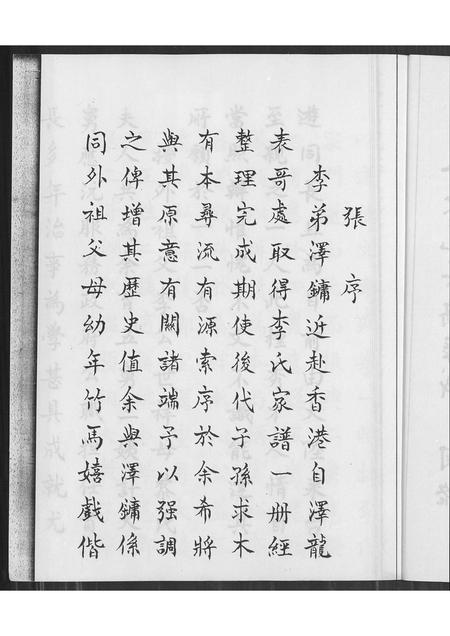 張序
李弟澤鏞近赴香港自澤龍
表哥處取得李氏家譜一册經
整理完成期使後代子孫求木
有本尋流有源索序於余希將
與其原意有關諸端予以强調
之俾增其歷史值余與澤鏞係
同外祖父母幼年竹馬嬉戲偕